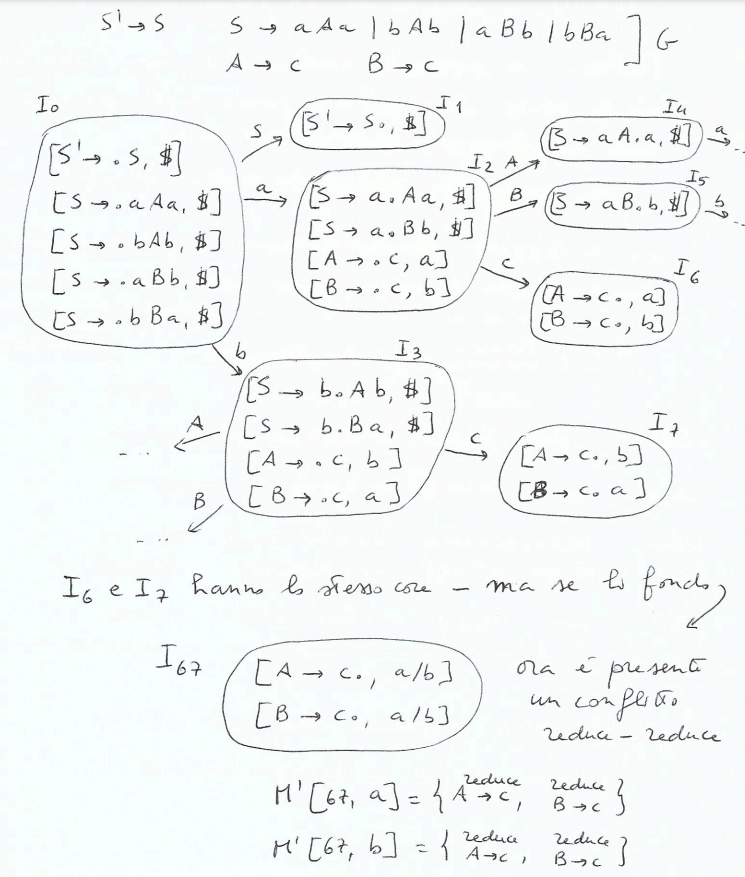 S' → S    S → aAa | bAb | aBb | bBa ] G
A → c    B → c
I0
[S' → .S, $]
[S → .aAa, $]
[S → .bAb, $]
[S → .aBb, $]
[S → .bBa, $]
S
I1
[S' → S., $]
a
I2
[S → a.Aa, $]
[S → a.Bb, $]
[A → .c, a]
[B → .c, b]
A
I4
[S → aA.a, $]
a
...
B
I5
[S → aB.b, $]
b
...
c
I6
[A → c., a]
[B → c., b]
b
I3
[S → b.Ab, $]
[S → b.Ba, $]
[A → .c, b]
[B → .c, a]
A
...
B
...
c
I7
[A → c., b]
[B → c. a]
I6 e I7 hanno lo stesso core - ma se li fondo,
I67
[A → c., a/b]
[B → c., a/b]
ora è presente
un conflitto
reduce - reduce
M'[67, a] = { reduce A→c, reduce B→c }
M'[67, b] = { reduce A→c, reduce B→c }